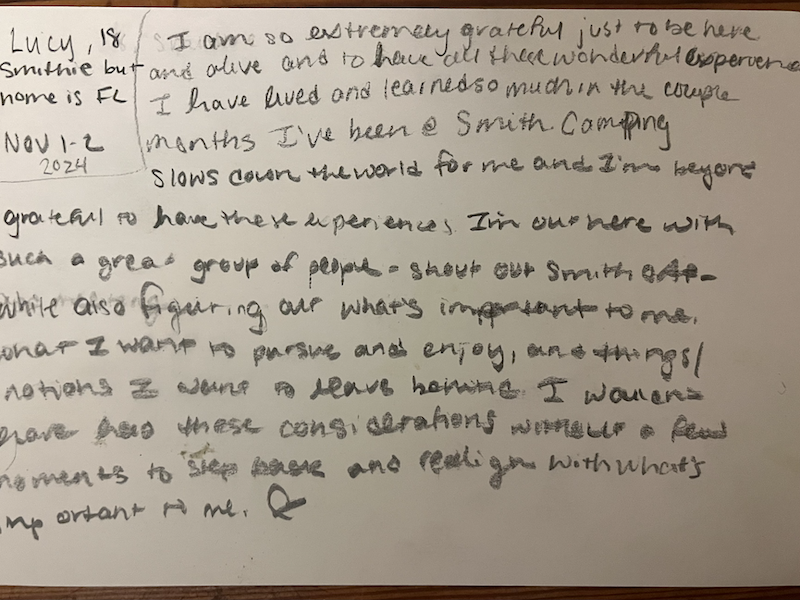 Lucy, 18
Smithie but
home is FL
NOV 1-2
2024
I am so extremely grateful just to be here
and alive and to have all these wonderful experiences
I have lived and learned so much in the couple
months I've been @ Smith. Camping
slows down the world for me and I'm beyond
grateful to have these experiences. I'm out here with
such a great group of people - shout out Smith
while also figuring out what's important to me.
what I want to pursue and enjoy, and things/
notions I want to leave behind I wouldn't
have had these considerations without a few
moments to step back and realign with what's
important to me.